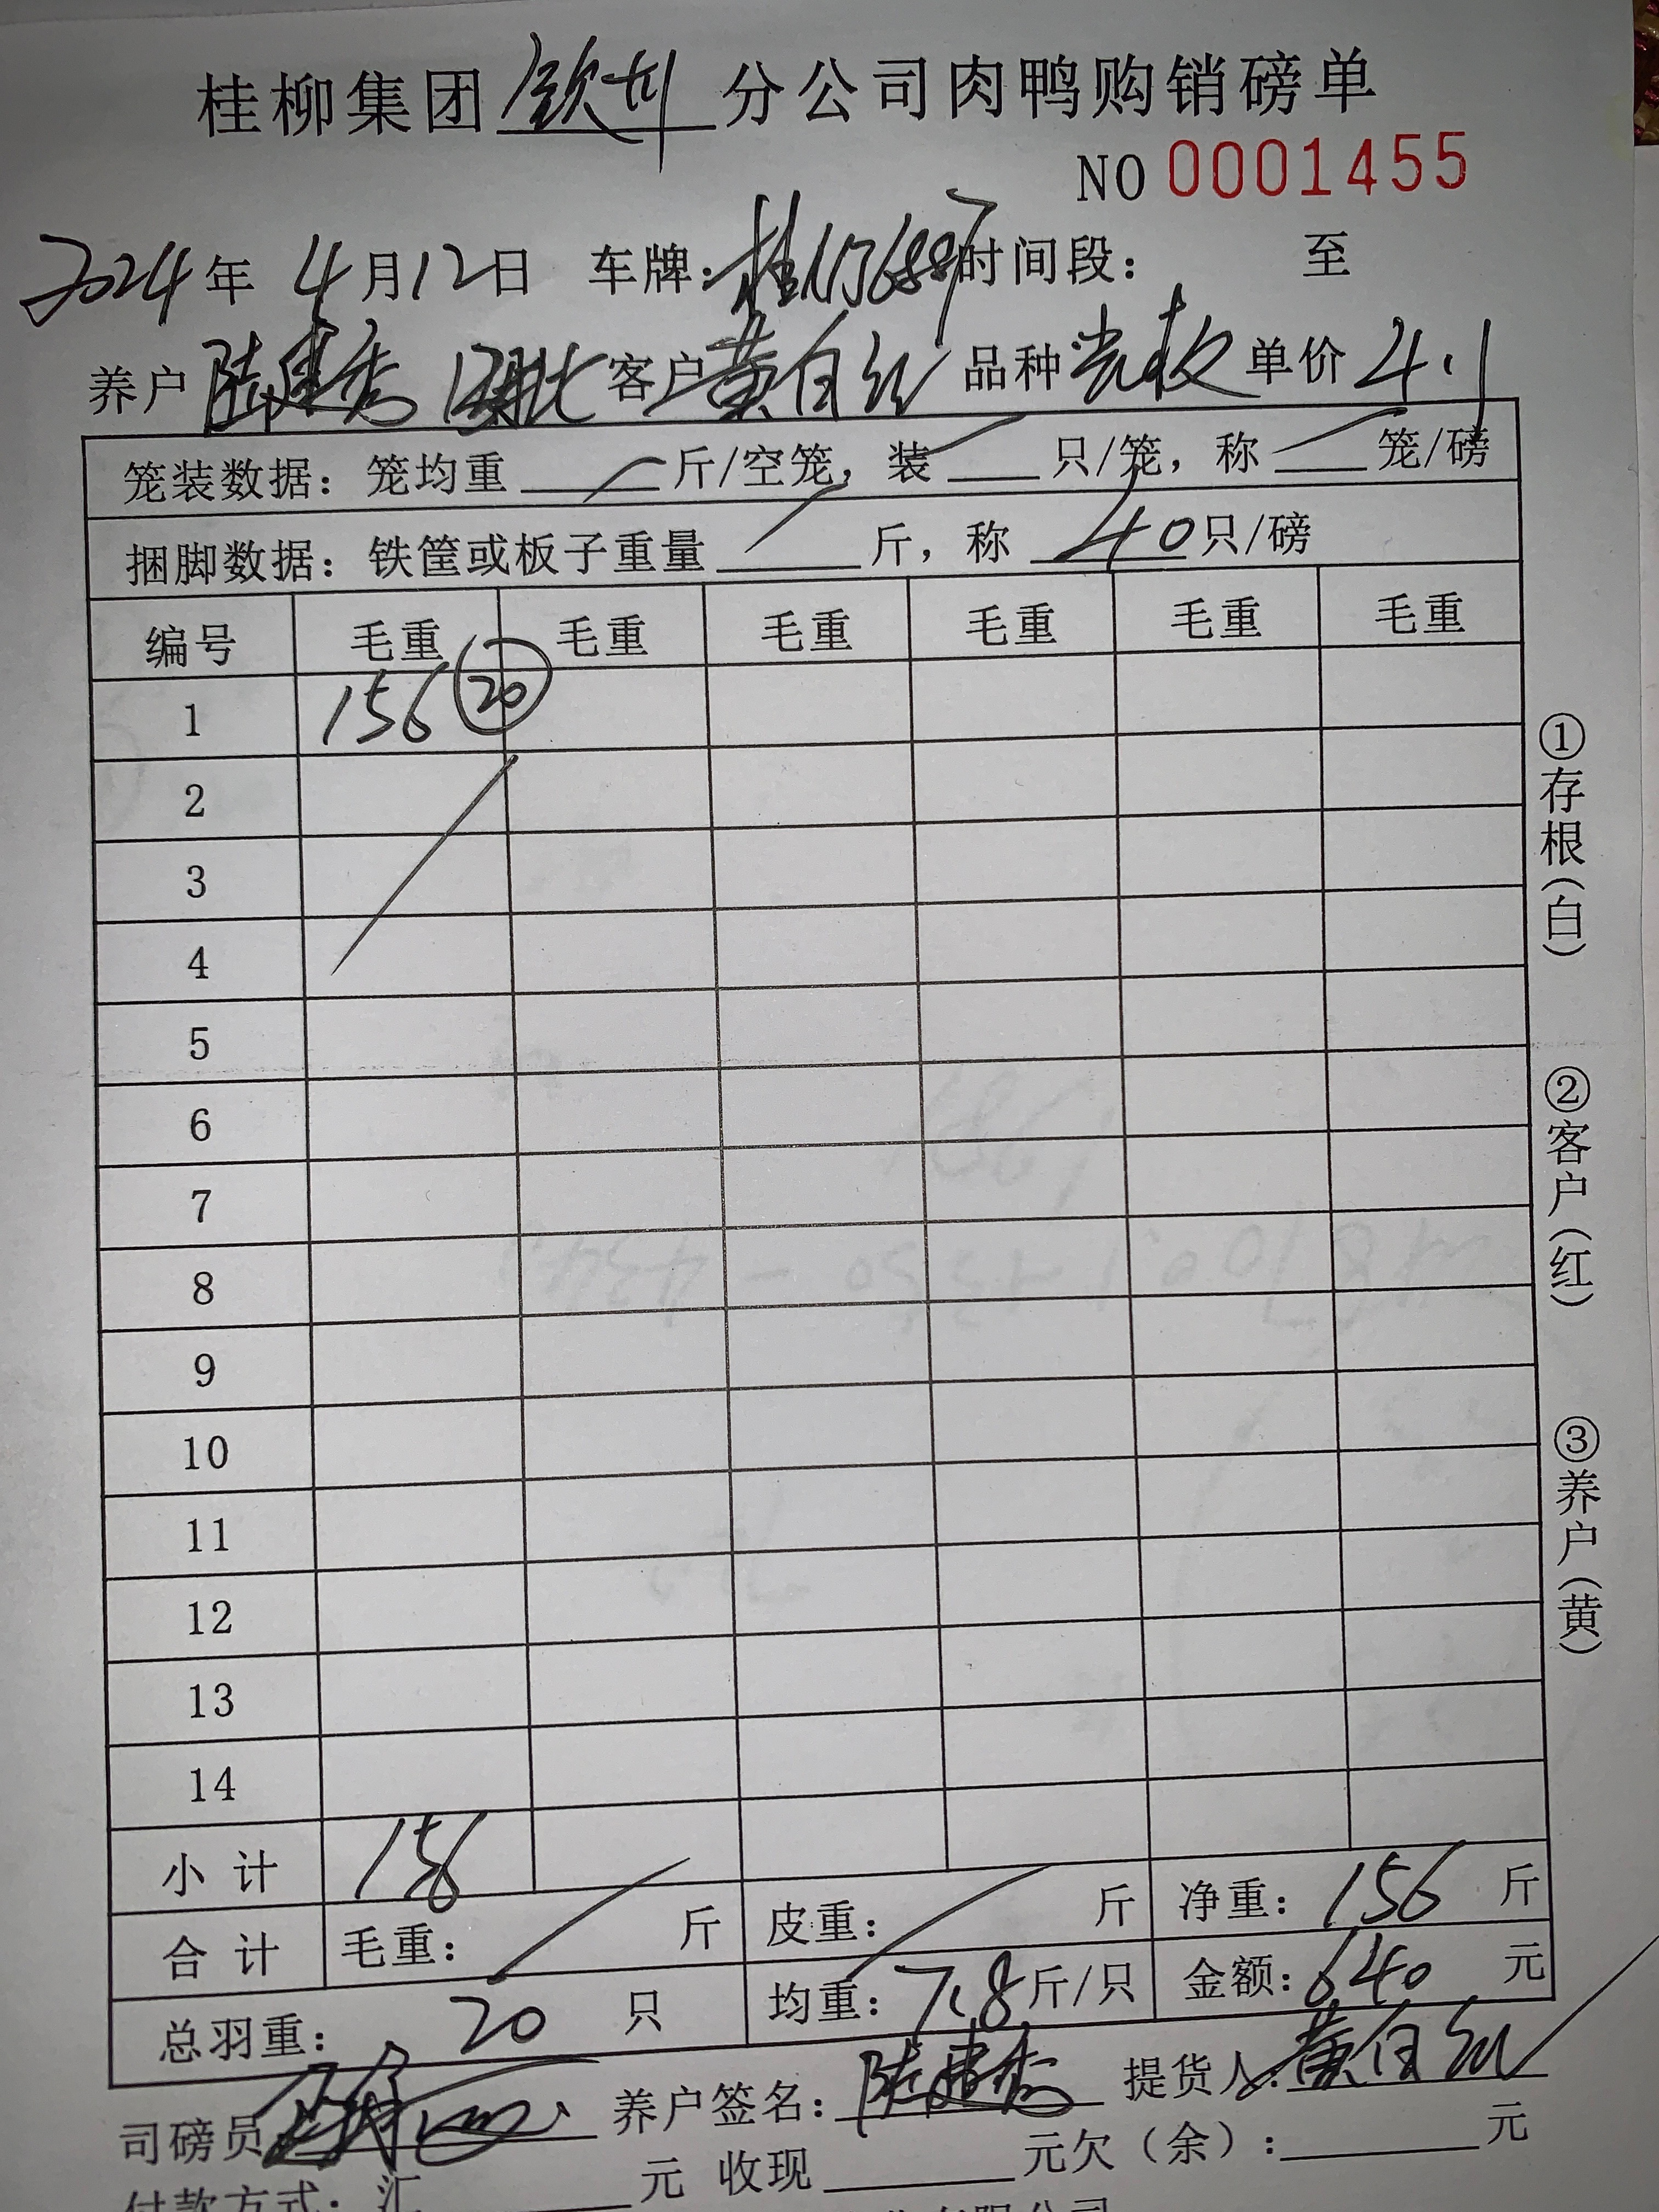 桂柳集团钦州分公司肉鸭购销磅单
NO 0001455
2024年 4月12日 车牌:桂N 时间段: 至
养户 陆建秀 客户 黄自红 品种 单价 4.1
笼装数据: 笼均重 斤/空笼, 装 只/笼, 称 笼/磅
捆脚数据: 铁筐或板子重量 斤, 称 40 只/磅
编号 毛重 毛重 毛重 毛重 毛重 毛重
1 156 20
2
3
4
5
6
7
8
9
10
11
12
13
14
小计 156
合计 毛重: 斤 皮重: 斤 净重: 156 斤
总羽重: 20 只 均重: 7.8 斤/只 金额: 640 元
司磅员: 养户签名: 陆建秀 提货人: 黄自红
付款方式: 汇 元 收现 元欠(余): 元
①存根(白)
②客户(红)
③养户(黄)